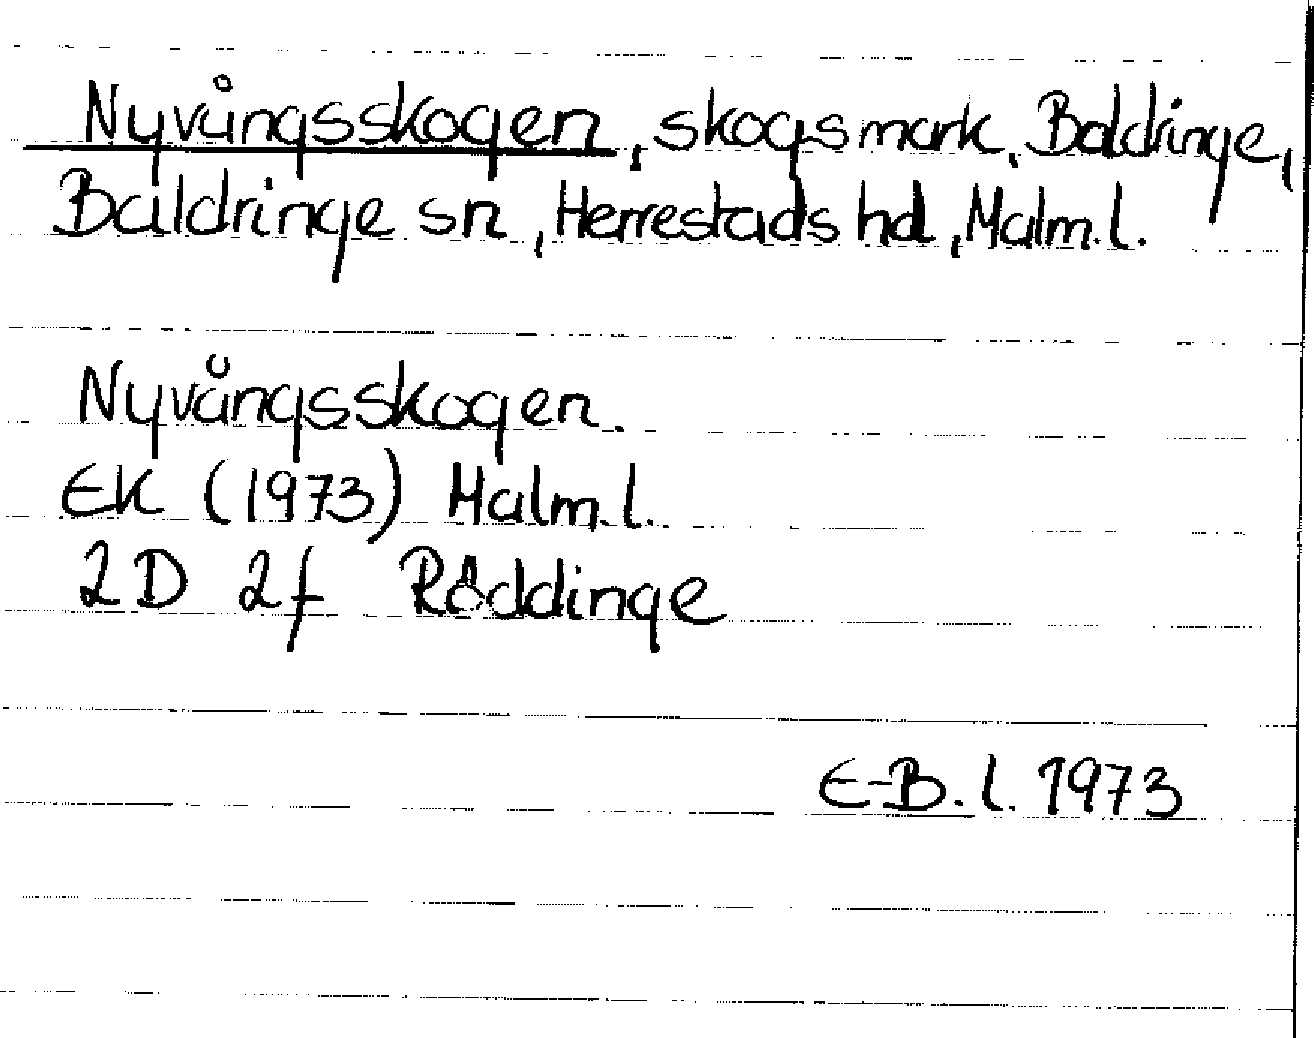 Nyvångsskogen, skogsmark, Baldringe,
Baldringe sn, Herrestads hd, Malm. l.
Nyvångsskogen.
EK (1973) Malm. l.
2D 2f Röddinge
E-B. l. 1973